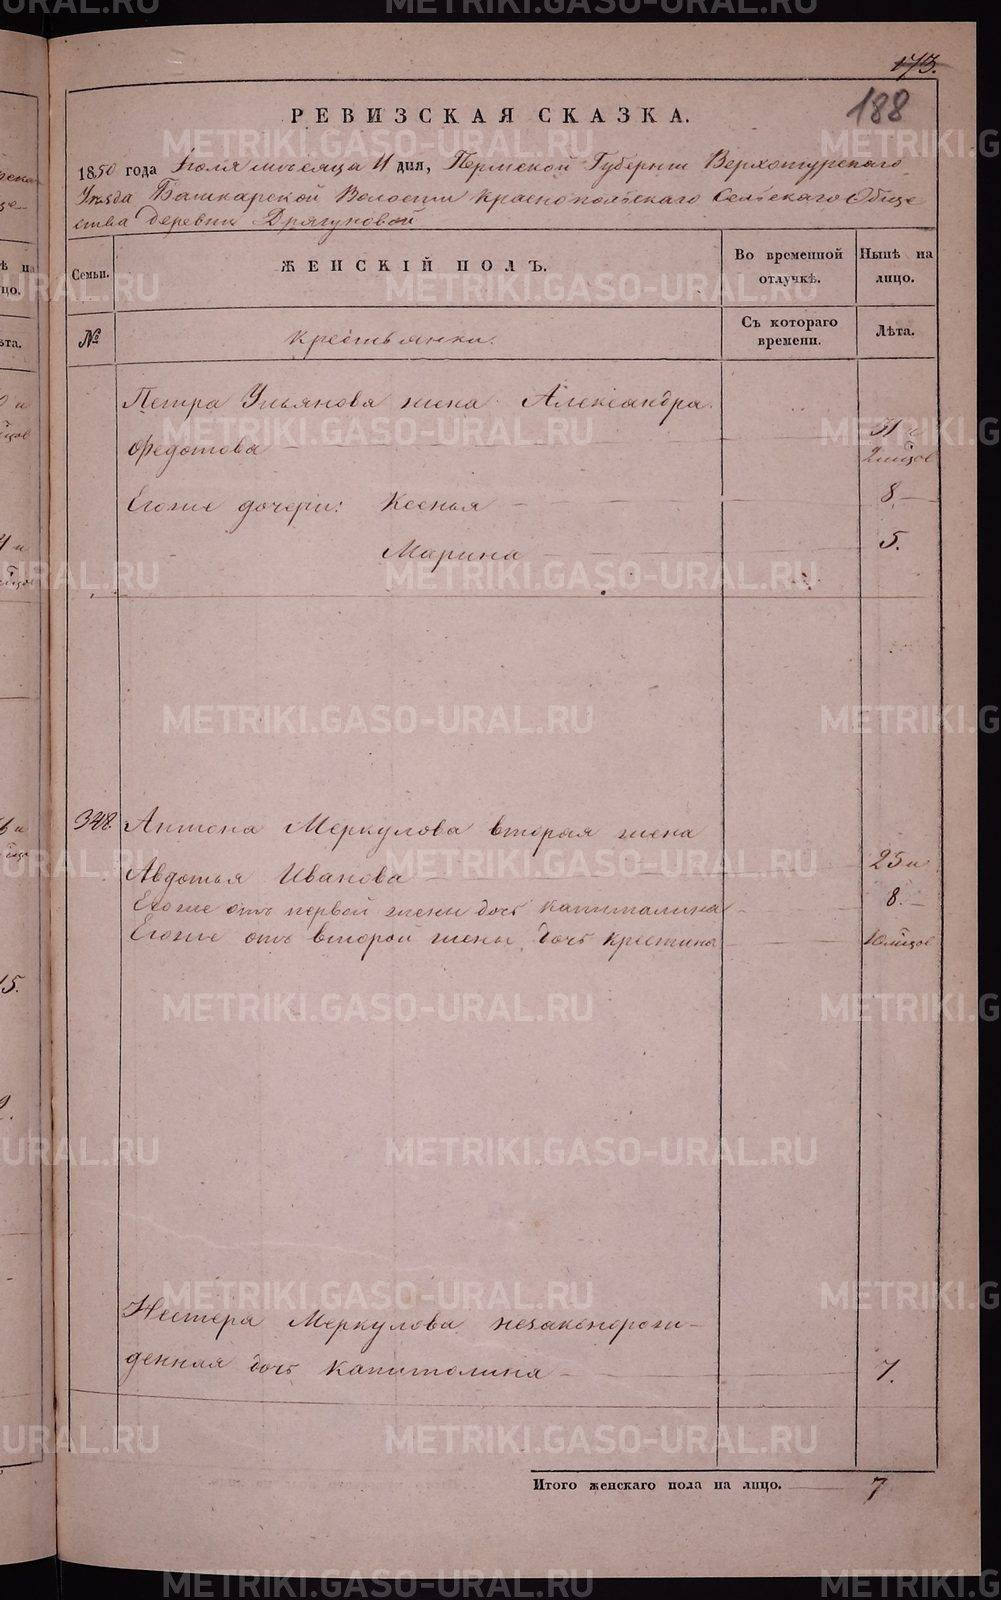 173.
188
РЕВИЗСКАЯ СКАЗКА.
1850 года Іюля мѣсяца 11 дня, Пермской Губерніи Верхотурскаго
Уѣзда Башкарской Волости Краснопольскаго Сельскаго Обще
ства деревни Дрягуновой
Семьи.
ЖЕНСКІЙ ПОЛЪ.
Во временной отлучкѣ.
Нынѣ на лицо.
№
Крестьянки.
Съ котораго времени.
Лѣта.
Петра Ульянова жена Александра
Федотова 31 и
2 мѣцов
Егоже дочери: Ксенья 8
Марина 5.
348. Антона Меркулова вторая жена
Авдотья Иванова 25 и
Егоже отъ первой жены дочь Капиталина 8.
Егоже отъ второй жены дочь Крестина 10 мѣцов
Нестера Меркулова незаконорож-
денная дочь Капитолина 7.
Итого женскаго пола на лицо. 7
METRIKI.GASO-URAL.RU